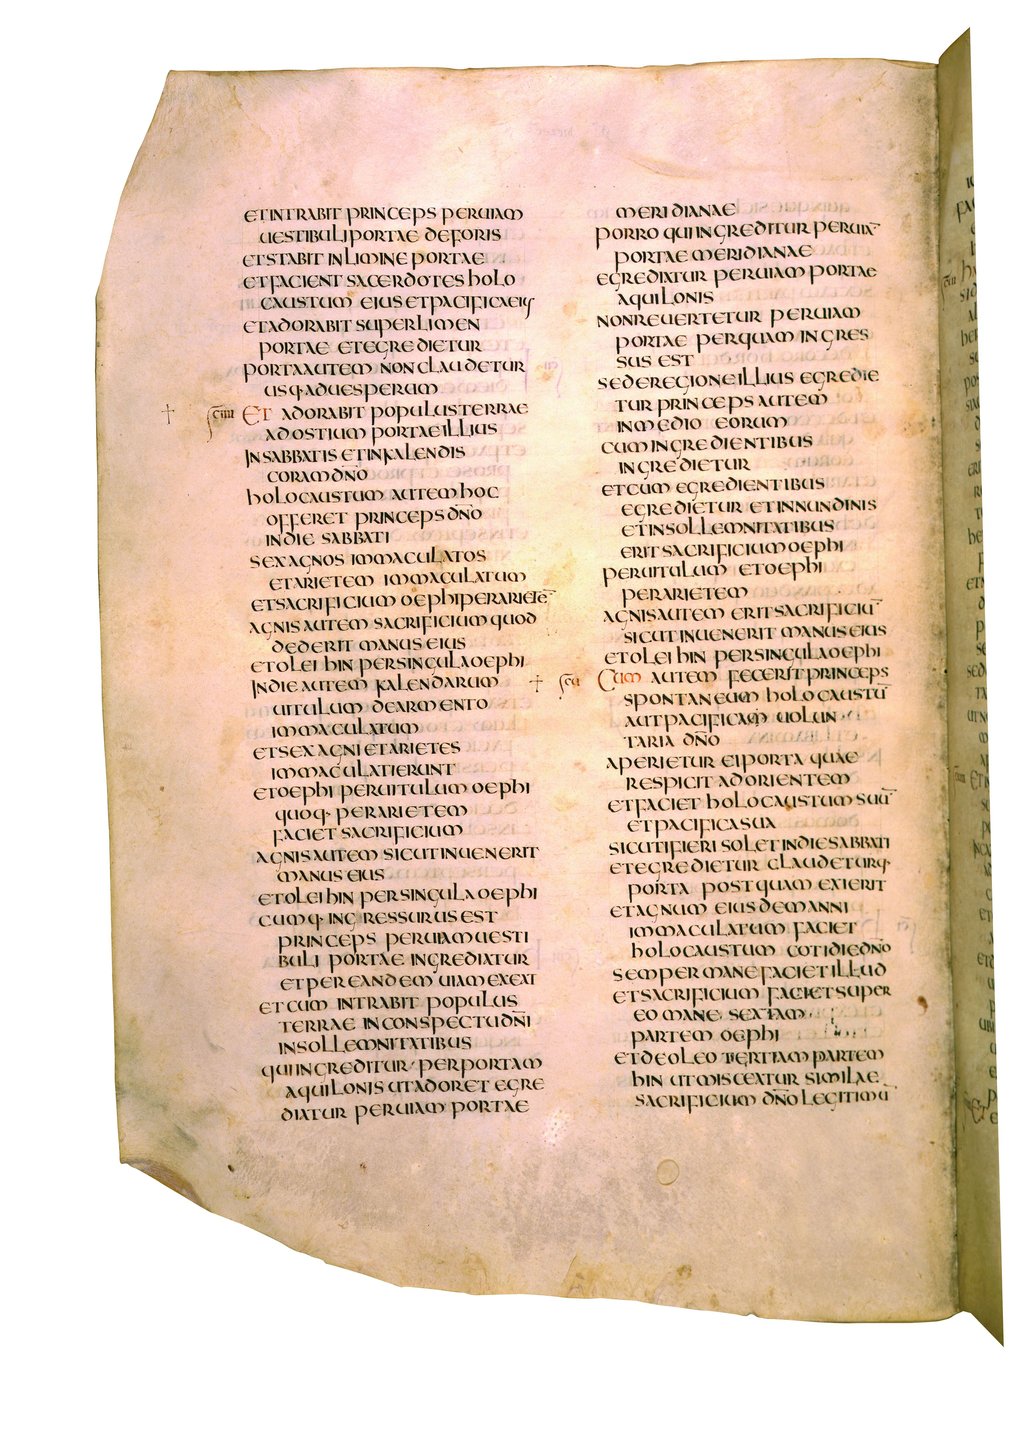 ET INTRABIT PRINCEPS PER UIAM
UESTIBULI PORTAE DEFORIS
ET STABIT IN LIMINE PORTAE
ET FACIENT SACERDOTES HOLO
CAUSTUM EIUS ET PACIFICA EIUS
ET ADORABIT SUPER LIMEN
PORTAE ET EGREDIETUR
PORTA AUTEM NON CLAUDETUR
USQ· AD UESPERUM
ET ADORABIT POPULUS TERRAE
AD OSTIUM PORTAE ILLIUS
IN SABBATIS ET IN KALENDIS
CORAM DN̄O
HOLOCAUSTUM AUTEM HOC
OFFERET PRINCEPS DN̄O
IN DIE SABBATI
SEX AGNOS IMMACULATOS
ET ARIETEM IMMACULATUM
ET SACRIFICIUM OEPHI PER ARIETĒ
AGNIS AUTEM SACRIFICIUM QUOD
DEDERIT MANUS EIUS
ET OLEI HIN PER SINGULA OEPHI
IN DIE AUTEM KALENDARUM
UITULUM DE ARMENTO
IMMACULATUM
ET SEX AGNI ET ARIETES
IMMACULATI ERUNT
ET OEPHI PER UITULUM OEPHI
QUOQ· PER ARIETEM
FACIET SACRIFICIUM
AGNIS AUTEM SICUT INUENERIT
MANUS EIUS
ET OLEI HIN PER SINGULA OEPHI
CUMQ· INGRESSURUS EST
PRINCEPS PER UIAM UESTI
BULI PORTAE INGREDIATUR
ET PER EANDEM UIAM EXEAT
ET CUM INTRABIT POPULUS
TERRAE IN CONSPECTU DN̄I
IN SOLLEMNITATIBUS
QUI INGREDITUR PER PORTAM
AQUILONIS UT ADORET EGRE
DIATUR PER UIAM PORTAE
MERIDIANAE
PORRO QUI INGREDITUR PER UIĀ
PORTAE MERIDIANAE
EGREDIATUR PER UIAM PORTAE
AQUILONIS
NON REUERTETUR PER UIAM
PORTAE PER QUAM INGRES
SUS EST
SED E REGIONE ILLIUS EGREDIE
TUR PRINCEPS AUTEM
IN MEDIO EORUM
CUM INGREDIENTIBUS
INGREDIETUR
ET CUM EGREDIENTIBUS
EGREDIETUR ET IN NUNDINIS
ET IN SOLLEMNITATIBUS
ERIT SACRIFICIUM OEPHI
PER UITULUM ET OEPHI
PER ARIETEM
AGNIS AUTEM ERIT SACRIFICIŪ
SICUT INUENERIT MANUS EIUS
ET OLEI HIN PER SINGULA OEPHI
CUM AUTEM FECERIT PRINCEPS
SPONTANEUM HOLOCAUSTŪ
AUT PACIFICAM UOLUN
TARIA DN̄O
APERIETUR EI PORTA QUAE
RESPICIT AD ORIENTEM
ET FACIET HOLOCAUSTUM SUŪ
ET PACIFICA SUA
SICUT FIERI SOLET IN DIE SABBATI
ET EGREDIETUR CLAUDETURQ·
PORTA POSTQUAM EXIERIT
ET AGNUM EIUSDEM ANNI
IMMACULATUM FACIET
HOLOCAUSTUM COTIDIE DN̄O
SEMPER MANE FACIET ILLUD
ET SACRIFICIUM FACIET SUPER
EO MANE SEXTAM
PARTEM OEPHI
ET DE OLEO TERTIAM PARTEM
HIN UT MISCEATUR SIMILAE
SACRIFICIUM DN̄O LEGITIMŪ